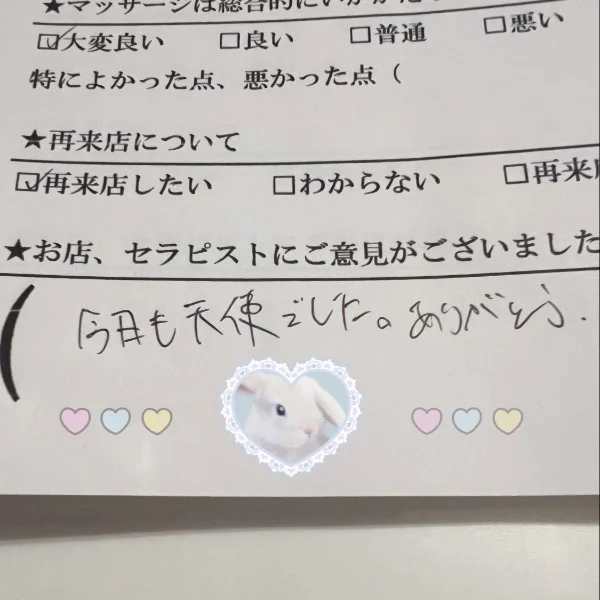 ★マッサージは総合的にいかが
☑大変良い □良い □普通 □悪い
特によかった点、悪かった点（
★再来店について
☑再来店したい □わからない □再来
★お店、セラピストにご意見がございました
（今日も天使でした。ありがとう.